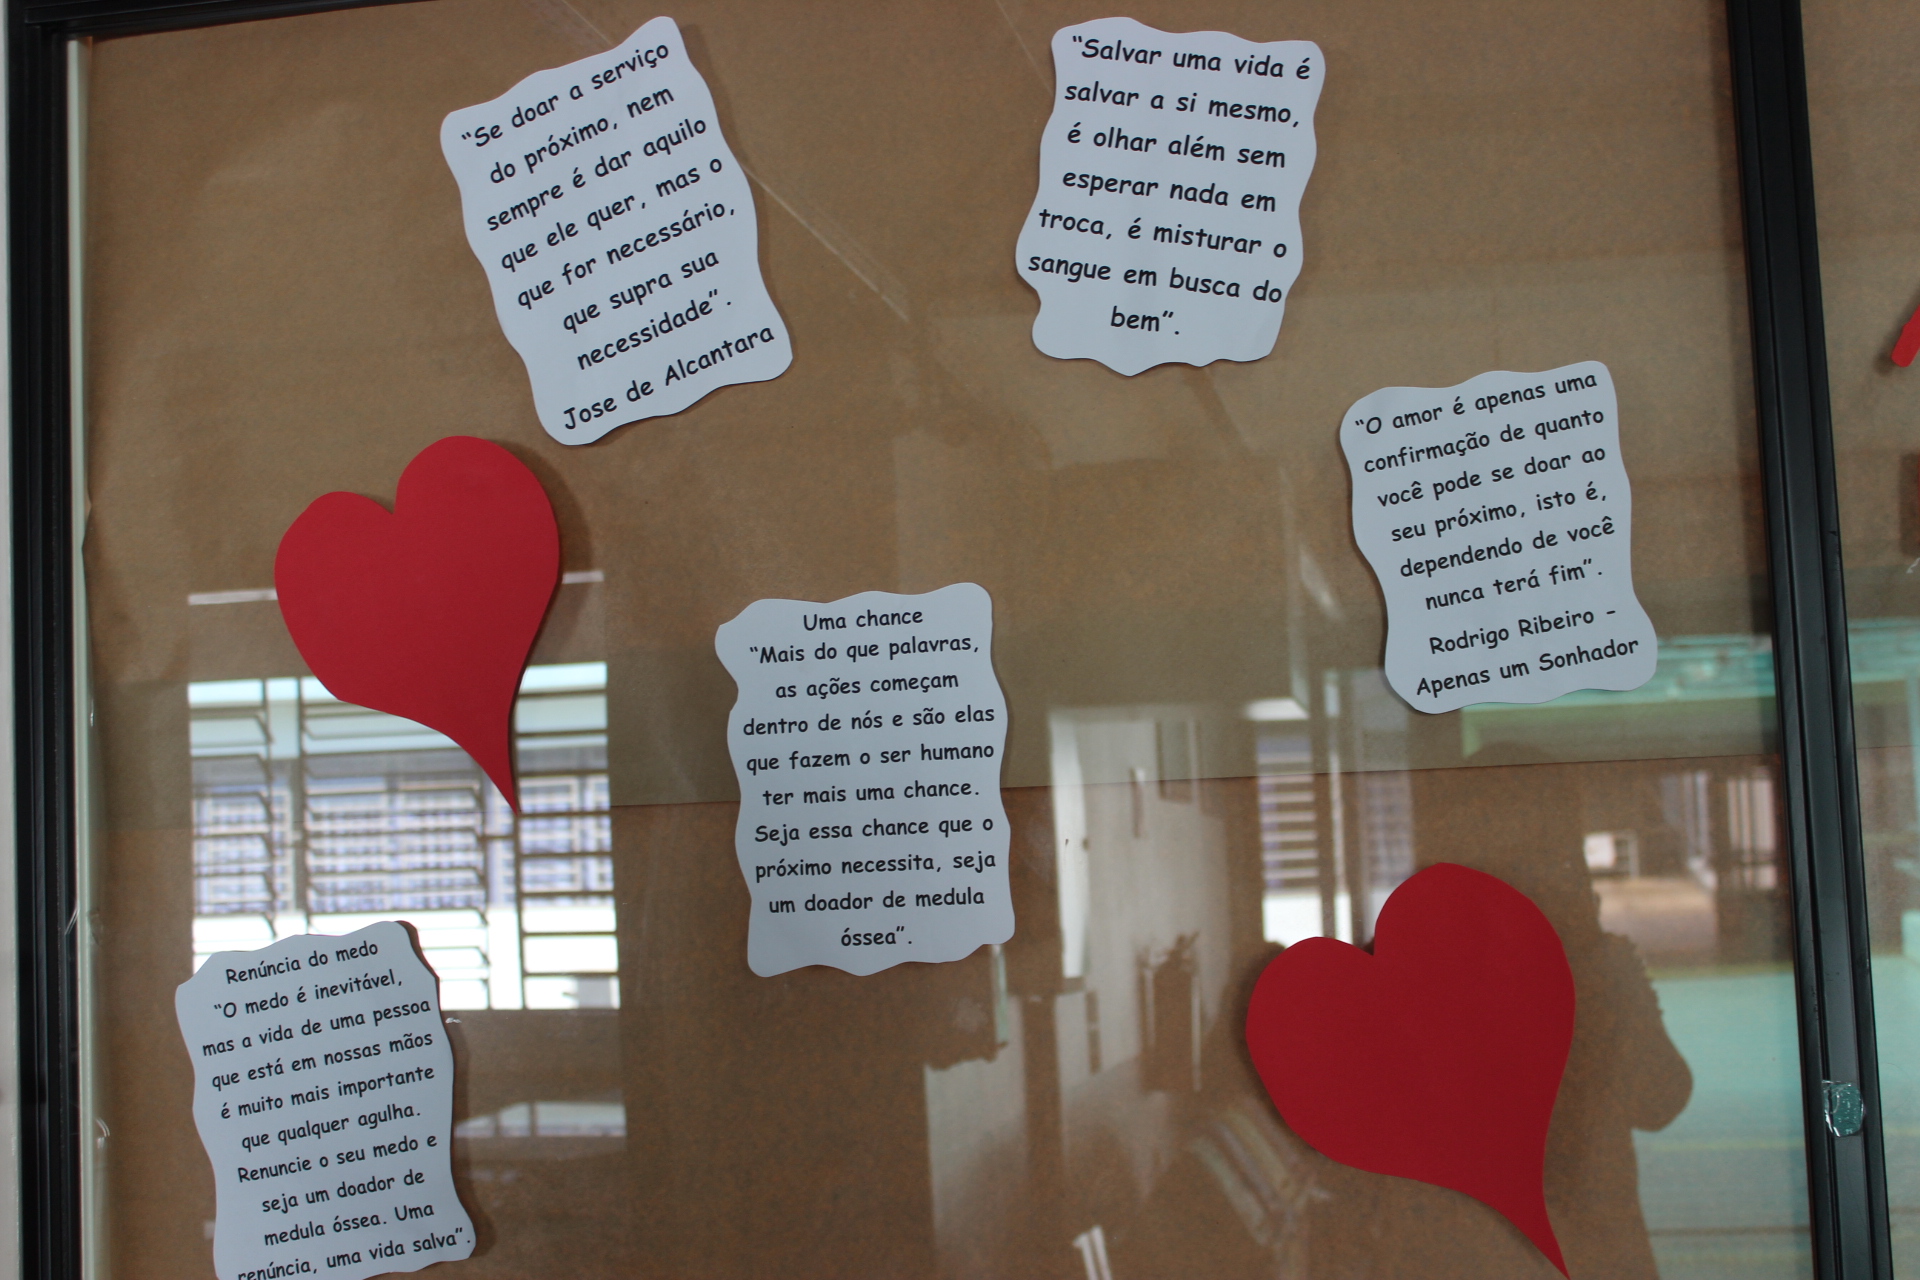 “Se doar a serviço
do próximo, nem
sempre é dar aquilo
que ele quer, mas o
que for necessário,
que supra sua
necessidade”.
Jose de Alcantara
“Salvar uma vida é
salvar a si mesmo,
é olhar além sem
esperar nada em
troca, é misturar o
sangue em busca do
bem”.
“O amor é apenas uma
confirmação de quanto
você pode se doar ao
seu próximo, isto é,
dependendo de você
nunca terá fim”.
Rodrigo Ribeiro -
Apenas um Sonhador
Uma chance
“Mais do que palavras,
as ações começam
dentro de nós e são elas
que fazem o ser humano
ter mais uma chance.
Seja essa chance que o
próximo necessita, seja
um doador de medula
óssea”.
Renúncia do medo
“O medo é inevitável,
mas a vida de uma pessoa
que está em nossas mãos
é muito mais importante
que qualquer agulha.
Renuncie o seu medo e
seja um doador de
medula óssea. Uma
renúncia, uma vida salva”.